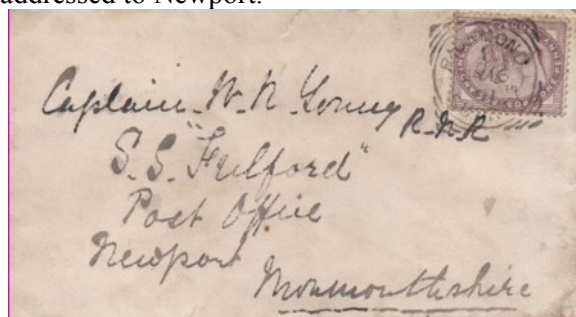 addressed to Newport.
RICHMOND
Captain W. R. Young R.N.R
S.S. "Fulford"
Post Office
Newport
Monmouthshire